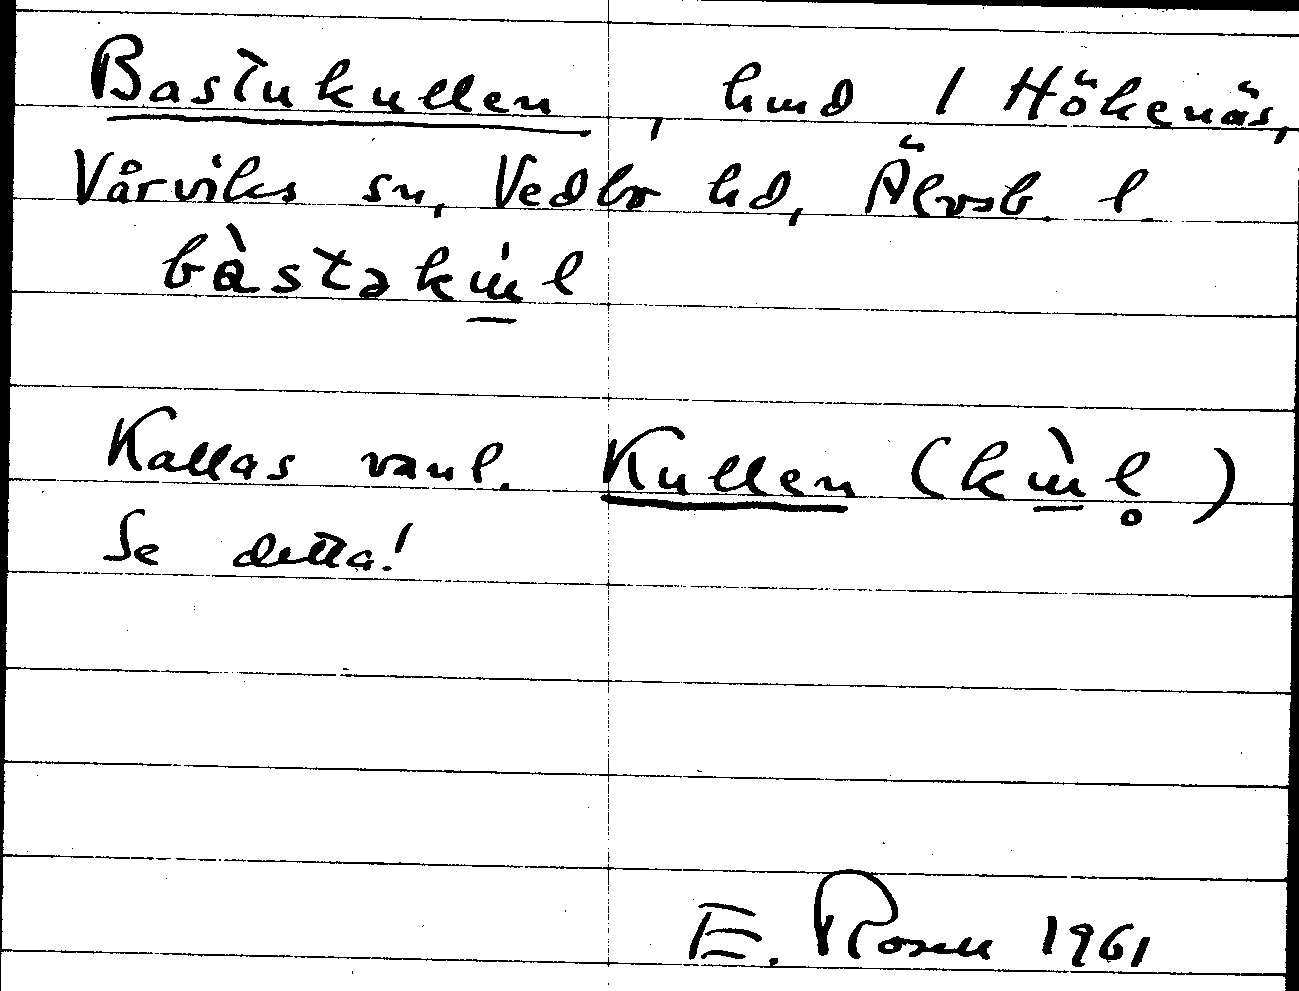 Bastukullen, hmd / Hökenäs,
Vårviks sn, Vedbo hd, Älvsb. l.
bàstəkɯ̲́l
Kallas vanl. Kullen (kɯ̲̀l̥)
Se detta!
E. Rosell 1961